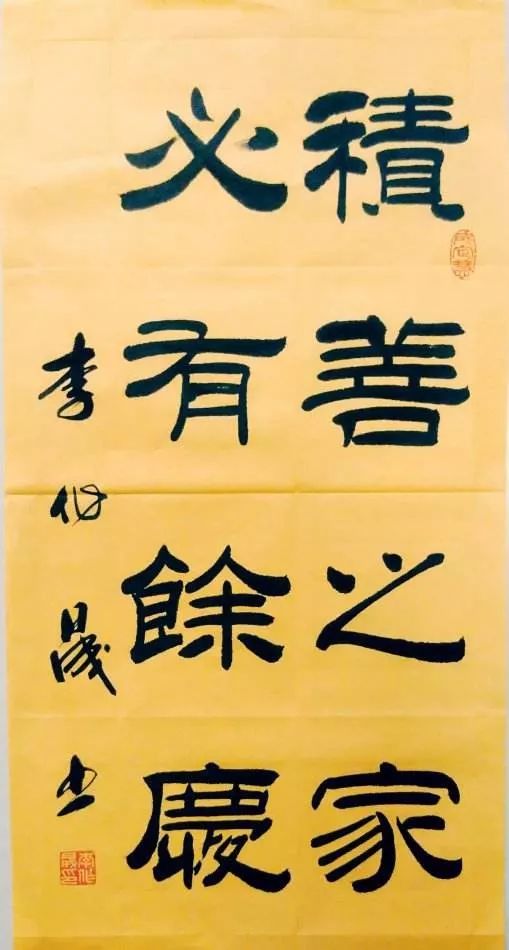 積善之家
必有餘慶
李作晟书